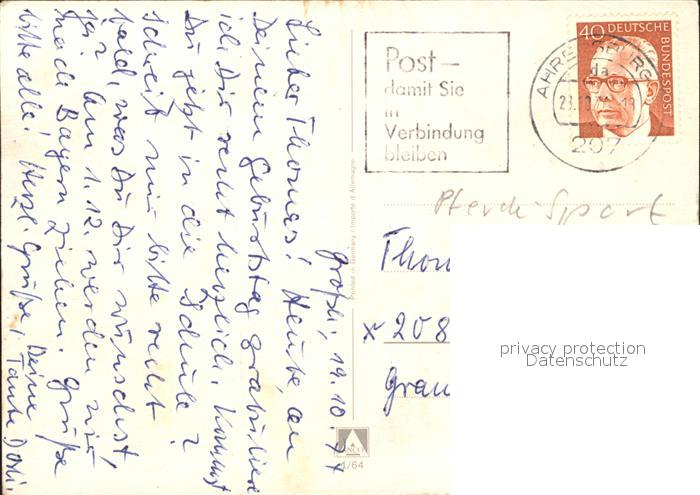 Großh., 19.10.74
Lieber Thomas! Heute, an
Deinem Geburtstag gratuliere
ich Dir recht herzlich. Kommst
Du jetzt in die Schule?
Schreib mir bitte recht
bald, was Du Dir wünschst,
ja? Am 1.12. werden wir
nach Bayern ziehen. Grüße
bitte alle! Herzl. Grüße, Deine
Tante Dorli.
Printed in Germany / Importe d'Allemagne
1/64
Post –
damit Sie
in
Verbindung
bleiben
AHRENSBURG
da
207
40 DEUTSCHE
BUNDESPOST
Pferde-Sport
Thom
x 208
Grau
privacy protection
Datenschutz